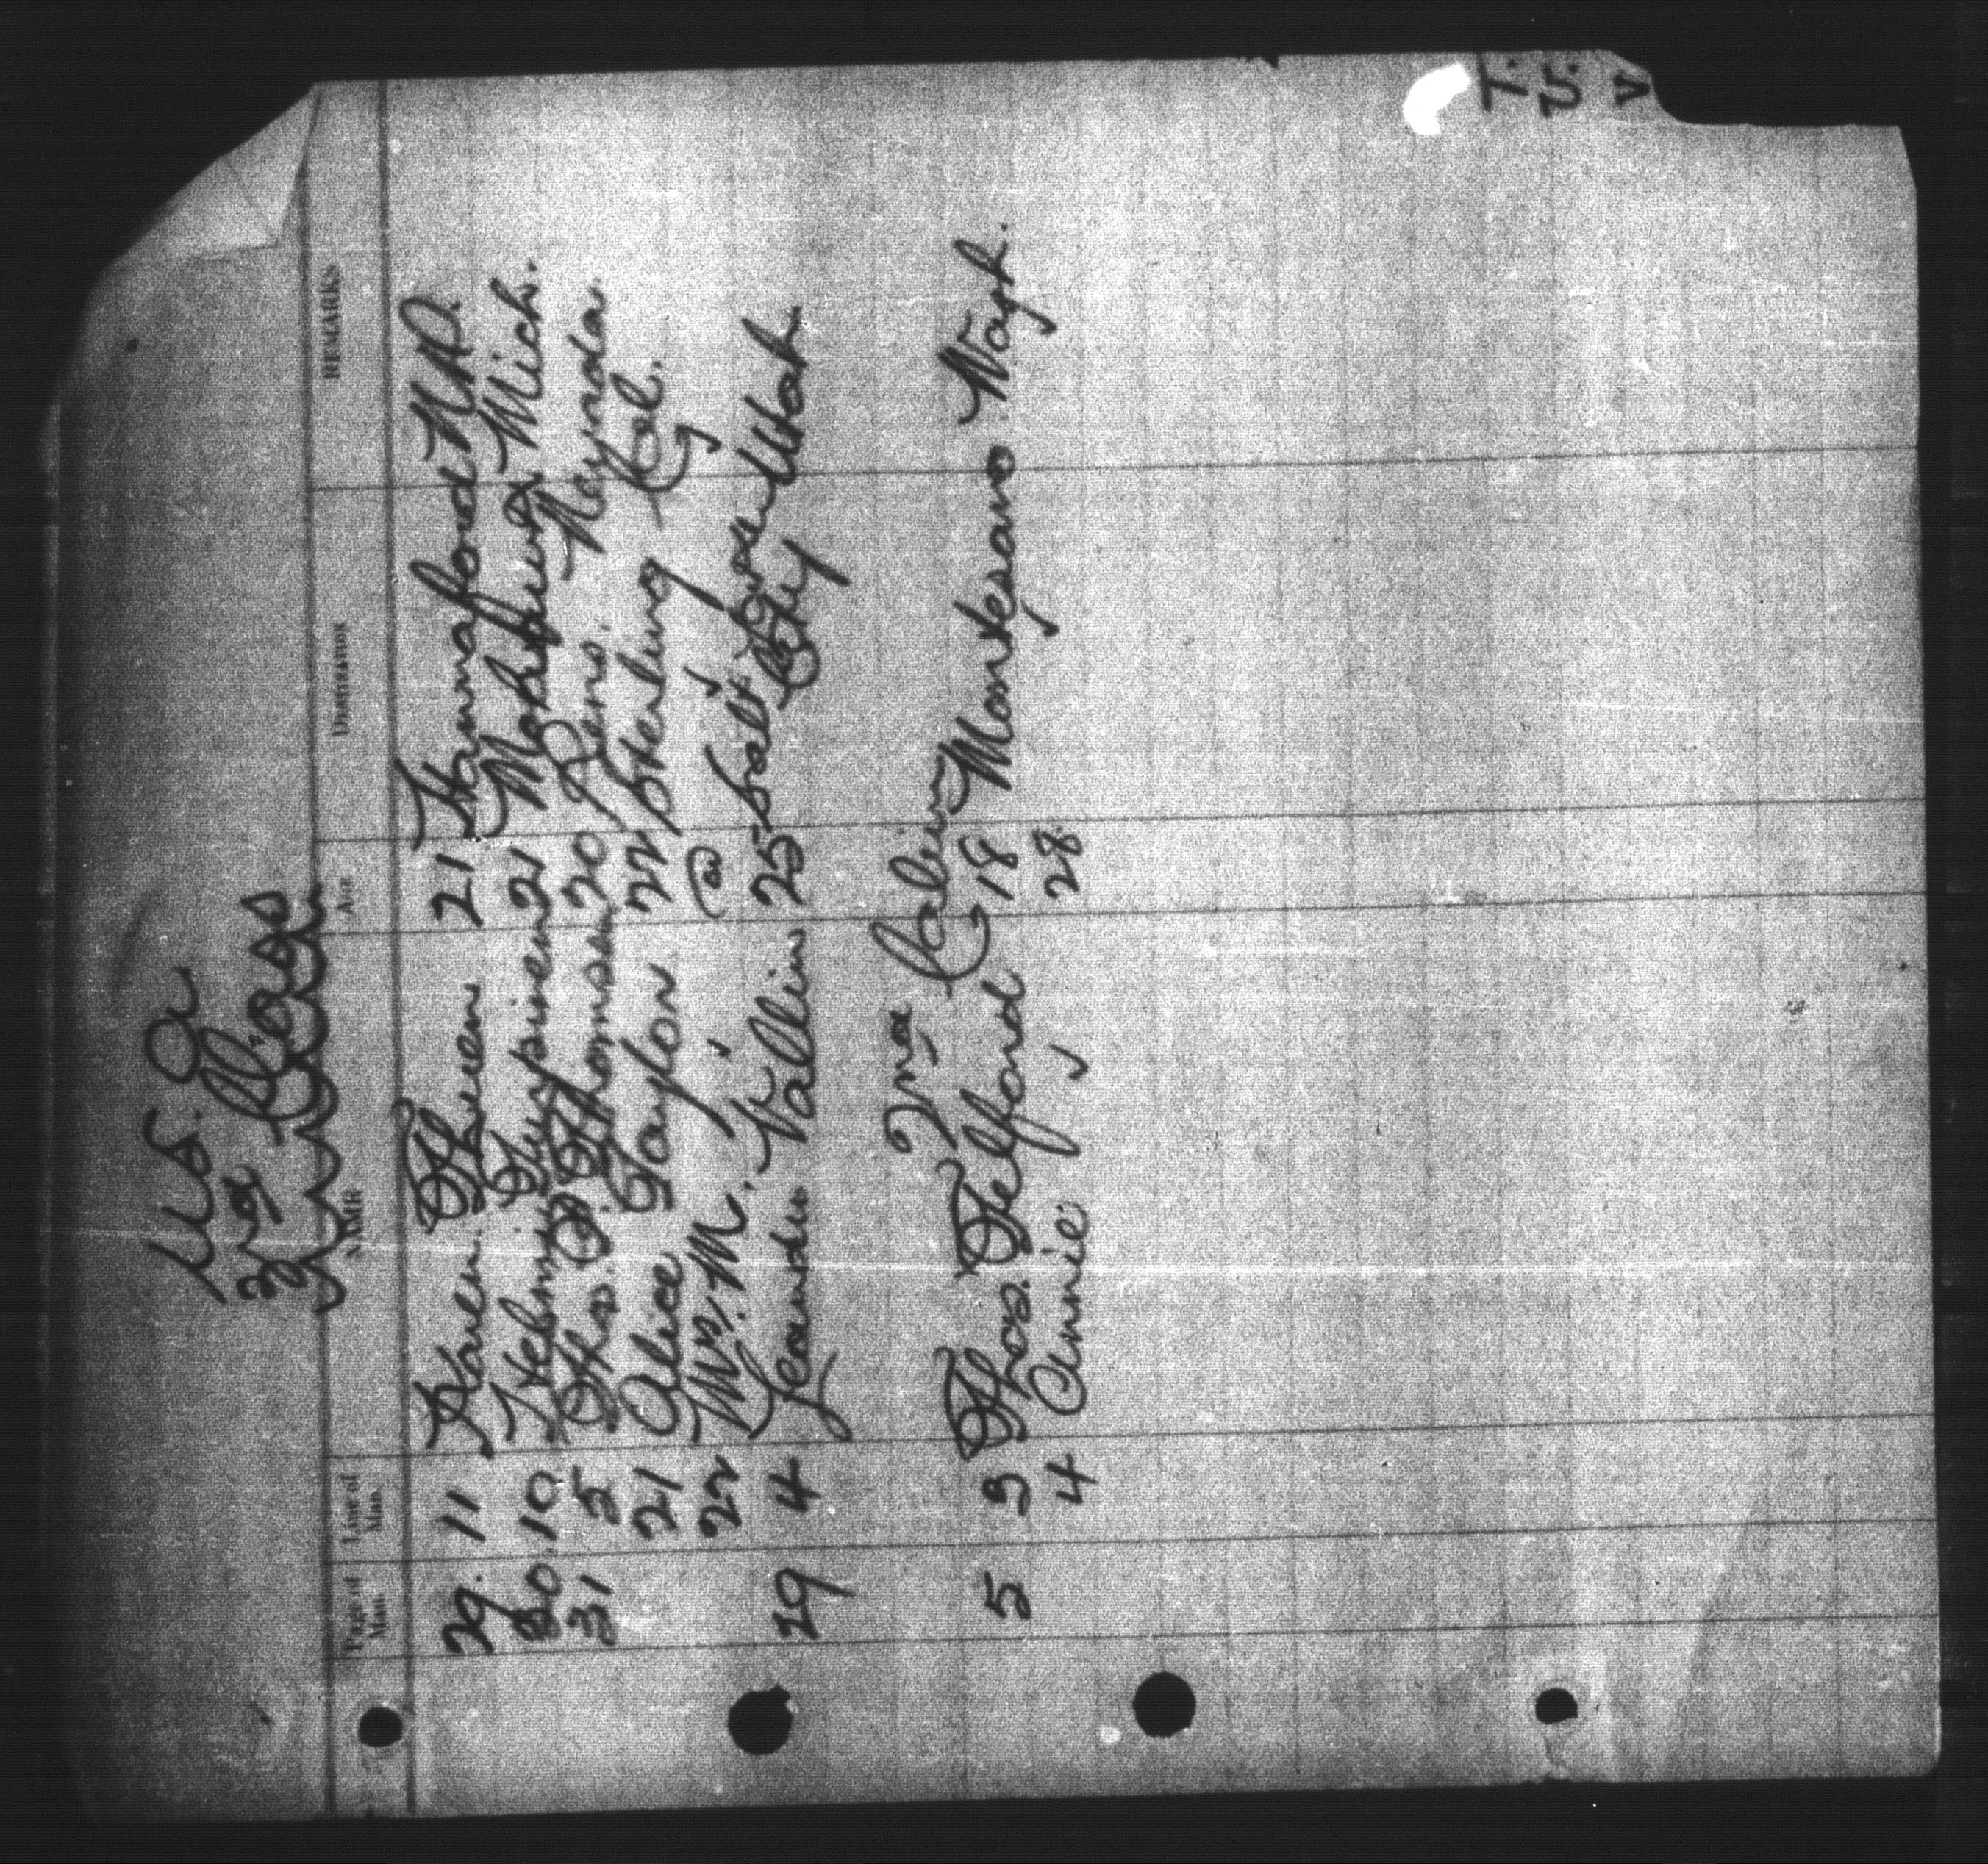 T.
U.
V
U.S. A
3rd Class
Page of Man. Line of Man. NAME AGE DESTINATION REMARKS
29. 11 Karen Theien 21 Hannaford N.D.
30. 10 21 Mich.
31 5 Thos. P. Thomsen 20 Reno. Nevada.
21 Alice Taylor 22 Sterling Col.
22 Wm. M. " @ " "
29 4 Leander Vallin 25 Salt Lake City Utah
2nd Cabin
5 3 Thos. Telford 18 Montesano Wash.
4 Annie " 28 " "